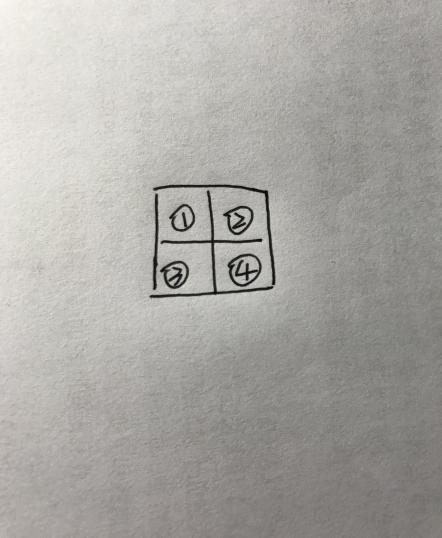 ① ②
③ ④